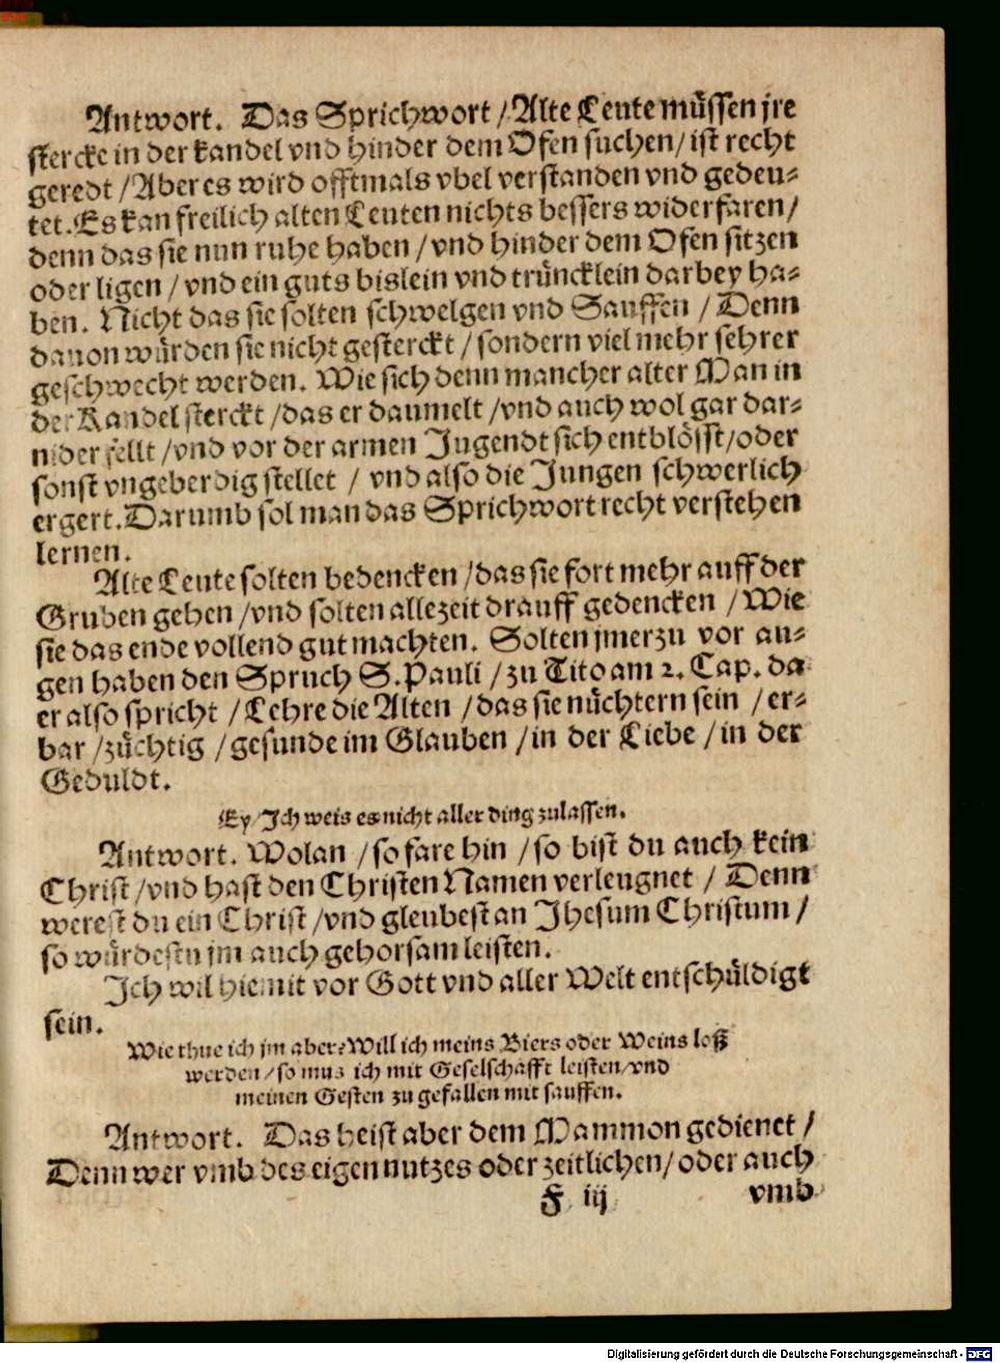 Antwort. Das Sprichwort / Alte Leute müssen jre
stercke in der kandel vnd hinder dem Ofen suchen / ist recht
geredt / Aber es wird offtmals vbel verstanden vnd gedeu⸗
tet. Es kan freilich alten Leuten nichts bessers widerfaren /
denn das sie nun ruhe haben / vnd hinder dem Ofen sitzen
oder ligen / vnd ein guts bislein vnd trüncklein darbey ha⸗
ben. Nicht das sie solten schwelgen vnd Sauffen / Denn
dauon würden sie nicht gesterckt / sondern viel mehr sehrer
geschwecht werden. Wie sich denn mancher alter Man in
der Kandel sterckt / das er daumelt / vnd auch wol gar dar⸗
nider fellt / vnd vor der armen Jugendt sich entblösst / oder
sonst vngeberdig stellet / vnd also die Jungen schwerlich
ergert. Darumb sol man das Sprichwort recht verstehen
lernen.
Alte Leute solten bedencken / das sie fort mehr auff der
Gruben gehen / vnd solten allezeit drauff gedencken / Wie
sie das ende vollend gut machten. Solten jmerzu vor au⸗
gen haben den Spruch S. Pauli / zu Tito am 2. Cap. da
er also spricht / Lehre die Alten / das sie nüchtern sein / er⸗
bar / züchtig / gesunde im Glauben / in der Liebe / in der
Geduldt.
Ey / Ich weis es nicht aller ding zulassen.
Antwort. Wolan / so fare hin / so bist du auch kein
Christ / vnd hast den Christen Namen verleugnet / Denn
werest du ein Christ / vnd gleubest an Jhesum Christum /
so würdestu jm auch gehorsam leisten.
Ich wil hiemit vor Gott vnd aller Welt entschüldigt
sein.
Wie thue ich jm aber? Will ich meins Biers oder Weins loß
werden / so mus ich mit Geselschafft leisten / vnd
meinen Gesten zu gefallen mit sauffen.
Antwort. Das heist aber dem Mammon gedienet /
Denn wer vmb des eigen nutzes oder zeitlichen / oder auch
F iij vmb
Digitalisierung gefördert durch die Deutsche Forschungsgemeinschaft - DFG